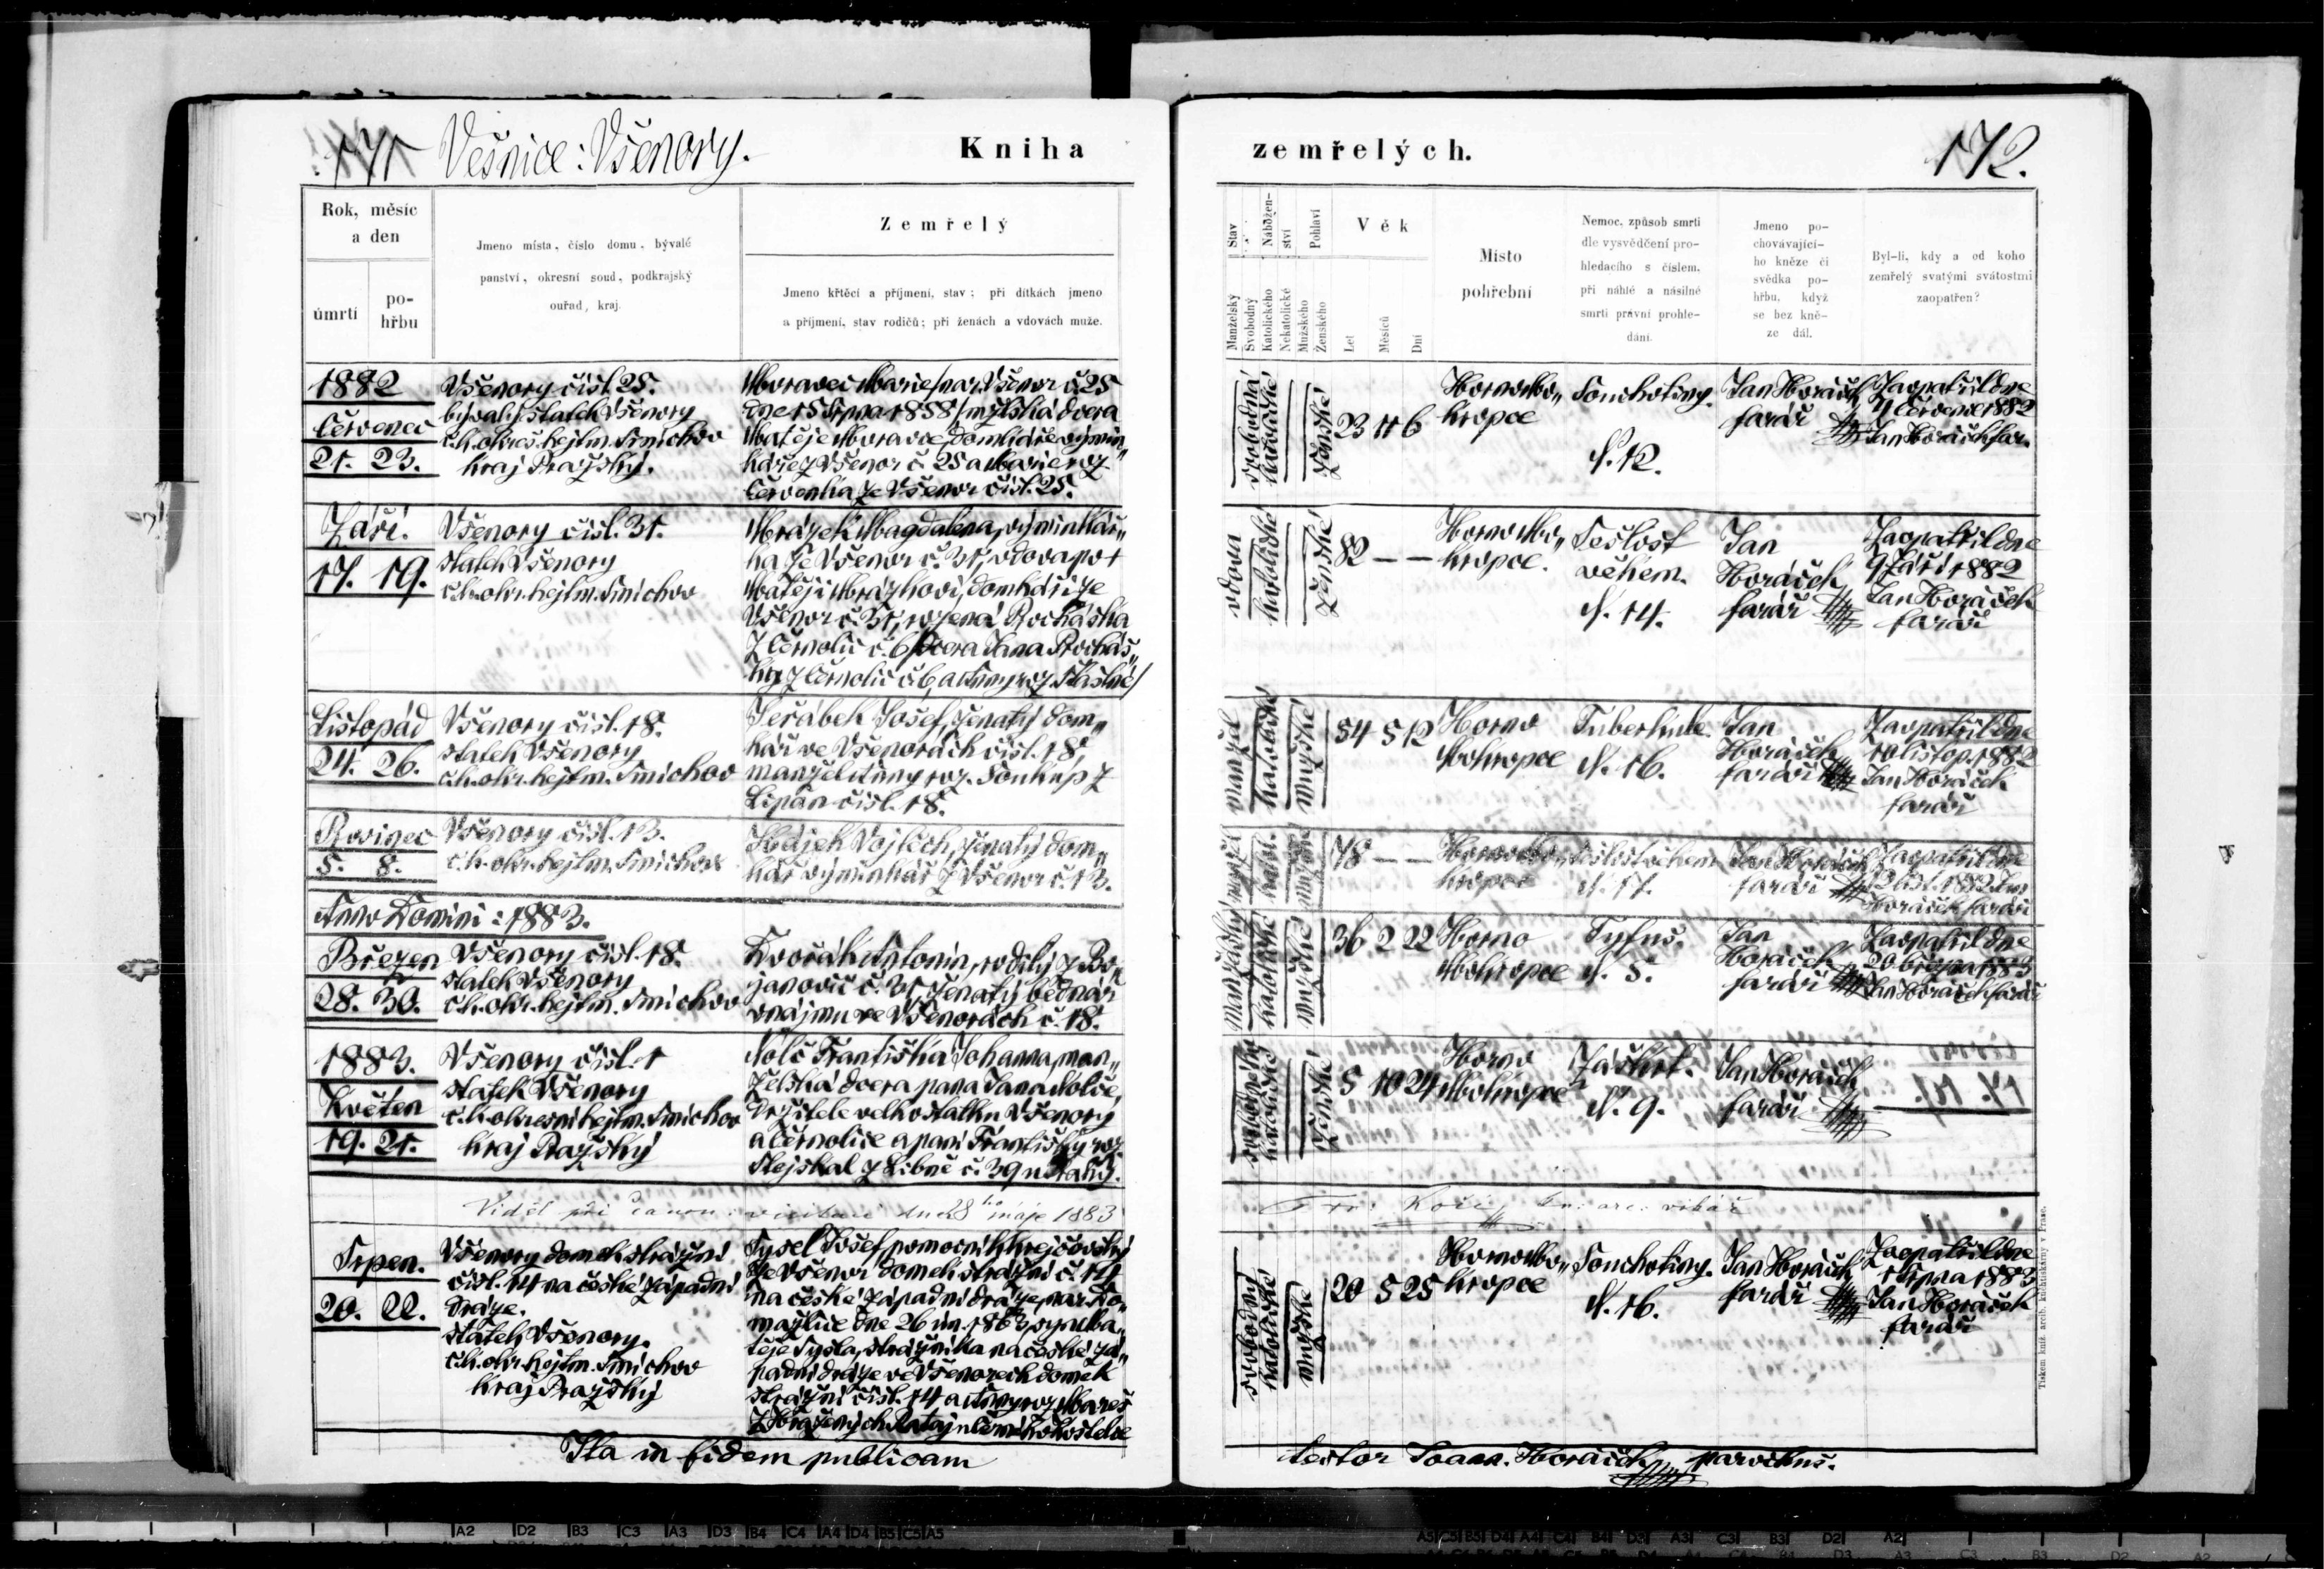 171 Vesnice: Všenory.
Kniha
zemřelých.
172.
Rok, měsíc
a den
úmrtí
po-
hřbu
Jmeno místa, číslo domu, bývalé
panství, okresní soud, podkrajský
ouřad, kraj.
Zemřelý
Jmeno křtěcí a příjmení, stav; při dítkách jmeno
a příjmení, stav rodičů; při ženách a vdovách muže.
Stav
Nábožen-
ství
Pohlaví
Manželský
Svobodný
Katolického
Nekatolické
Mužského
Ženského
Věk
Let
Měsíců
Dní
Místo
pohřební
Nemoc, způsob smrti
dle vysvědčení pro-
hledacího s číslem,
při náhlé a násilné
smrti právní prohle-
dání.
Jmeno po-
chovávající-
ho kněze či
svědka po-
hřbu, když
se bez kně-
ze dál.
Byl-li, kdy a od koho
zemřelý svatými svátostmi
zaopatřen?
1882
Červenec
21. 23.
Všenory čísl. 25.
bývalý statek Všenory
c.k. okres. hejtm. Smíchov
kraj Pražský.
Moravec Marie /nar. Všenor č. 25
dne 15 srpna 1858/ mžlská dcera
Matěje Moravce, domkáře výmin„
káře z Všenor č. 25 a Marie roz.
Červenka ze Všenor čísl. 25.
svobodná
katolické
ženské
23 11 6
Horno Mo„
kropce
Souchotiny.
N. 12.
Jan Horáček
farář
Zaopatřil dne
7 Července 1882
Jan Horáček far.
Září.
17. 19.
Všenory čísl. 31.
statek Všenory
c.k. okr. hejtm. Smíchov
Mrázek Magdalena, výminkář„
ka ze Všenor č. 31, vdova po †
Matěji Mrázkovi, domkáři ze
Všenor č. 31, rozená Procháska
z Černolic č. 6 /dcera Jana Procház„
ky z Černolic č. 6, a Anny roz. Šťastné/
vdova
katolické
ženské
82 — —
Horno Mo„
kropce.
Sešlost
věkem.
N. 14.
Jan
Horáček
farář
Zaopatřil dne
9 Září 1882
Jan Horáček
farář
Listopád
24. 26.
Všenory čísl. 18.
statek Všenory
c.k. okr. hejtm. Smíchov
Jeřábek Josef, ženatý dom„
kář ve Všenorách čísl. 18,
manžel Anny roz. Soukup z
Lipan čísl. 18.
manžel
katolické
mužské
54 5 12
Horno
Mokropce
Tuberkule.
N. 16.
Jan
Horáček
farář
Zaopatřil dne
10 listop. 1882
Jan Horáček
farář
Prosinec
5. 8.
Všenory čísl. 13.
c.k. okr. hejtm. Smíchov
Hájek Vojtěch, ženatý dom„
kář výminkář z Všenor č. 13.
katol.
78 — —
Horno Mo„
kropce
Sešlost věkem
N. 17.
Jan Horáček
farář
Zaopatřil dne
Horáček farář
Anno Domini: 1883.
Březen
28. 30.
Všenory čísl. 18.
statek Všenory
c.k. okr. hejtm. Smíchov
Dvořák Antonín, rodilý z Bo„
janovic č. 31, ženatý bednář
v nájmu ve Všenorách č. 18.
manželský
katolické
mužské
36 2 22
Horno
Mokropce
Tyfus.
N. 5.
Jan
Horáček
farář
Zaopatřil dne
20 března 1883
Jan Horáček farář
1883.
Květen
19. 21.
Všenory čísl. 1
statek Všenory
c.k. okresní hejtm. Smíchov
kraj Pražský
Nolč Františka Johanna, man„
želská dcera pana Jana Nolče,
držitele velkostatku Všenory
a Černolice a paní Františky roz.
Stejskal z Libně č. 39 u Prahy.
katolické
ženské
5 10 24
Horno
Mokropce
Záškrt.
N. 9.
Jan Horáček
farář
Viděl při canon. visitaci dne 28ho máje 1883
Kočí, vikář
Srpen.
20. 22.
Všenory domek strážní
čísl. 14 na české západní
dráze.
statek Všenory.
c.k. okr. hejtm. Smíchov
kraj Pražský
Sysel Josef, pomocník krejčovský
ze Všenor domek strážní č. 14
na české západní dráze, nar. Do„
mažlice dne 26 un. 1863, syn Ma„
těje Sysla, strážníka na české zá„
padní dráze ve Všenorech domek
strážní čísl. 14 a Anny roz. Mareš
z Hrazených Rataj u Černého Kostelce
svobodný
katolické
mužské
20 5 25
Horno Mo„
kropce
Souchotiny.
N. 16.
Jan Horáček
farář
Zaopatřil dne
1 Srpna 1883
Jan Horáček
farář
Ita in fidem publicam
testor Joann. Horáček parochus.
Tiskem knít. arcib. knihtiskárny v Praze.
A2 D2 B3 C3 A3 D3 B4 C4 A4 D4 B5 C5 A5
A5 C5 B5 D4 A4 C4 B4 D3 A3 C3 B3 D2 A2